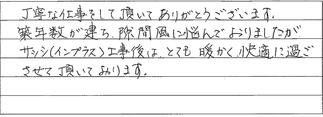 丁寧な仕事をして頂いてありがとうございます。
築年数が建ち、隙間風に悩んでおりましたが
サッシ(インプラス)工事後は、とても暖かく快適に過ご
させて頂いております。